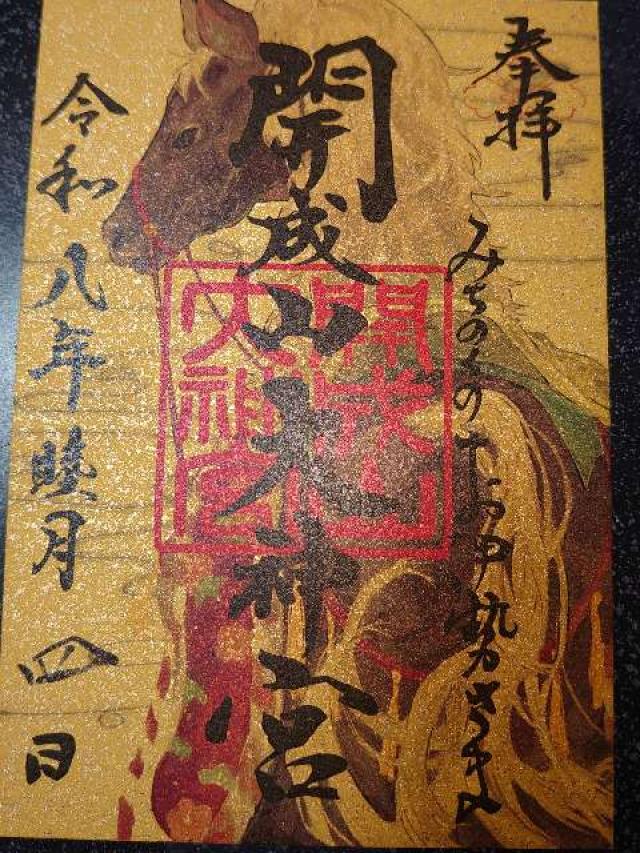 奉拝
みちのくのおゐせさま
開成山大神宮
開成山
大神宮
令和八年睦月四日